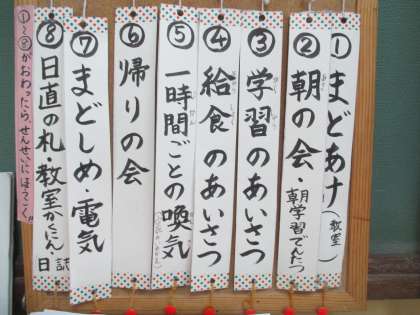 ①まどあけ(教室)
②朝の会・朝学習でんたつ
③学習のあいさつ
④給食のあいさつ
⑤一時間ごとの喚気
⑥帰りの会
⑦まどしめ・電気
⑧日直の札・教室かくにん・日誌
①〜⑧がおわったら、せんせいにほうこく。